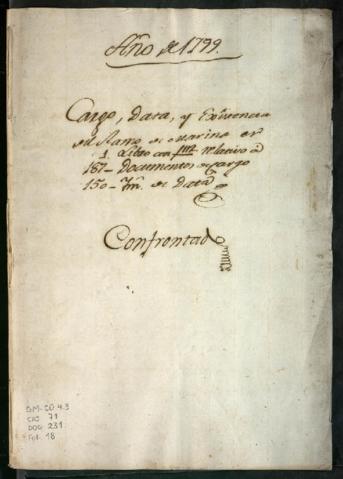 Año de 1799.
Cargo, Data, y Existencia
del Ramo de Marina en
1. Libro con relativo a
187 - Documentos de cargo
150 - de Data
Confrontado
OM-CO 4.3
CAJ 71
DOC 231
Fol. 18